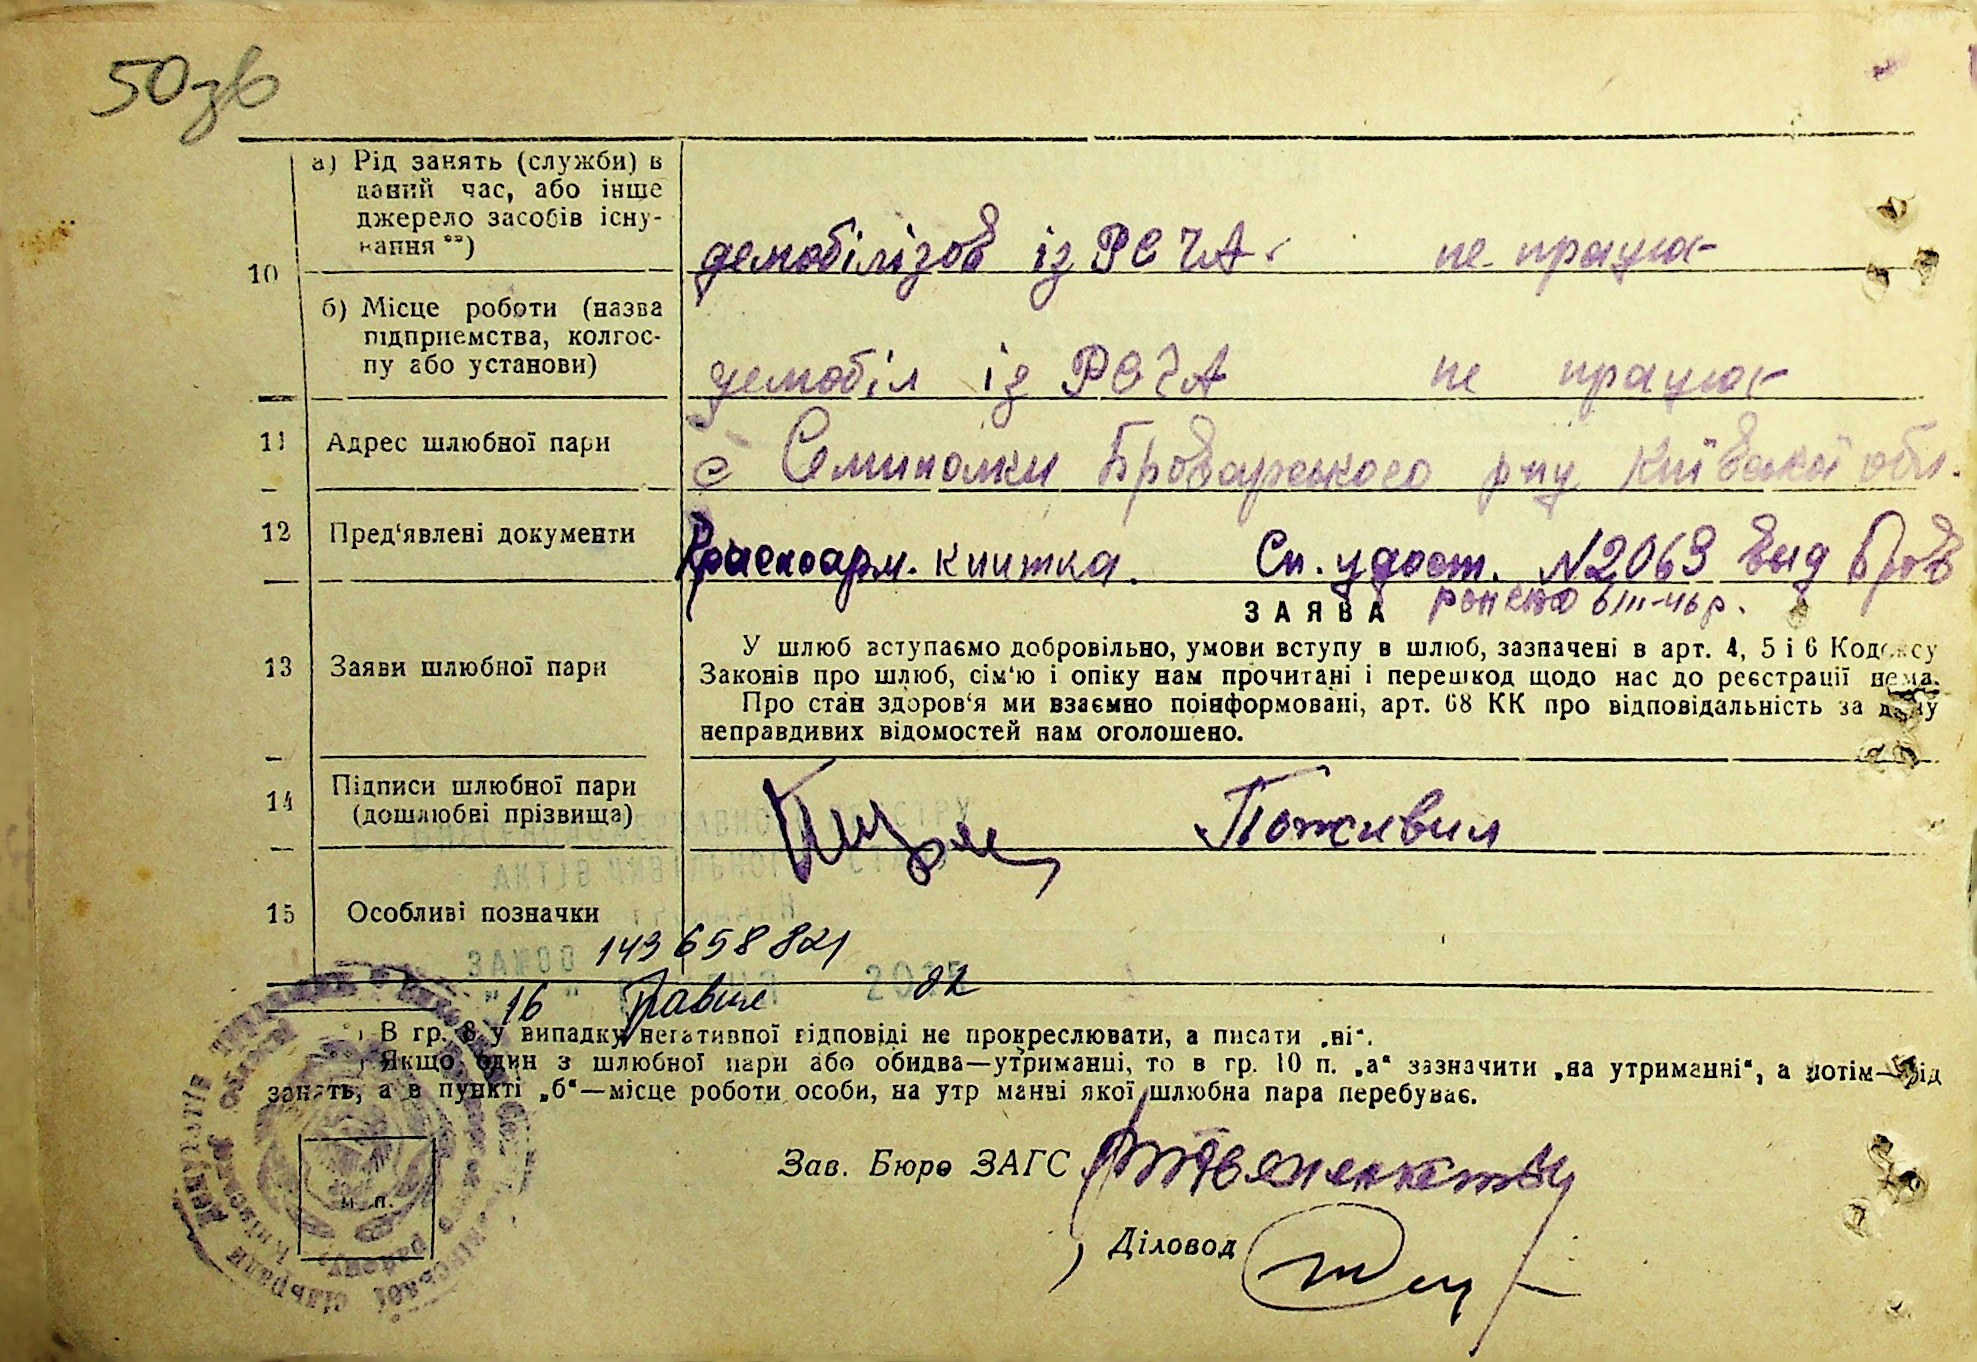 50зв
а) Рід занять (служби) в
даний час, або інше
джерело засобів існу-
вання **)
демобілізов із РСЧА. не працює
10
б) Місце роботи (назва
підприємства, колгос-
пу або установи)
демобіл із РСЧА не працює
11 Адрес шлюбної пари
с Семиполки Броварського р-ну Київської обл.
12 Пред‘явлені документи
Красноарм. книжка. Сп. удост. №2063 выд Бров
13 Заяви шлюбної пари
ЗАЯВА
У шлюб вступаємо добровільно, умови вступу в шлюб, зазначені в арт. 4, 5 і 6 Кодексу
Законів про шлюб, сім‘ю і опіку нам прочитані і перешкод щодо нас до реєстрації нема.
Про стан здоров‘я ми взаємно поінформовані, арт. 68 КК про відповідальність за дачу
неправдивих відомостей нам оголошено.
14 Підписи шлюбної пари
(дошлюбні прізвища)
Поживил
15 Особливі позначки
143658821
16 травня 2025
В гр. 8 у випадку негативної відповіді не прокреслювати, а писати „ні“.
Якщо один з шлюбної пари або обидва—утриманці, то в гр. 10 п. „а“ зазначити „на утриманні“, а потім—рід
занять, а в пункті „б“—місце роботи особи, на утр манні якої шлюбна пара перебуває.
Зав. Бюро ЗАГС
м. п.
Діловод